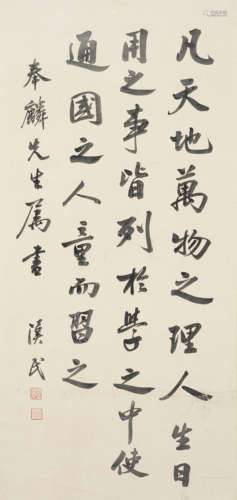 凡天地萬物之理人生日
用之事皆列於學之中使
通國之人童而習之
奉麟先生属書
漢民